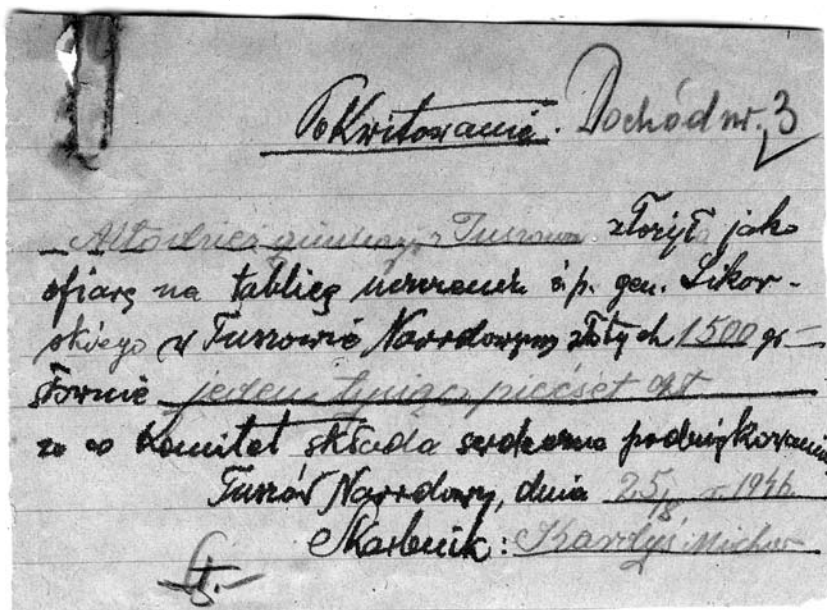 Pokwitowanie. Dochód nr. 3
Młodzież gimnazj. z Tuszowa złożył jako
ofiarę na tablicę ś.p. gen. Sikor-
skiego w Tuszowie Narodowym złotych 1500 gr –
słownie jeden tysiąc pięćset
za co Komitet składa serdeczne podziękowanie
Tuszów Narodowy, dnia 25/8 r. 1946
Skarbnik: Karolyś Michał